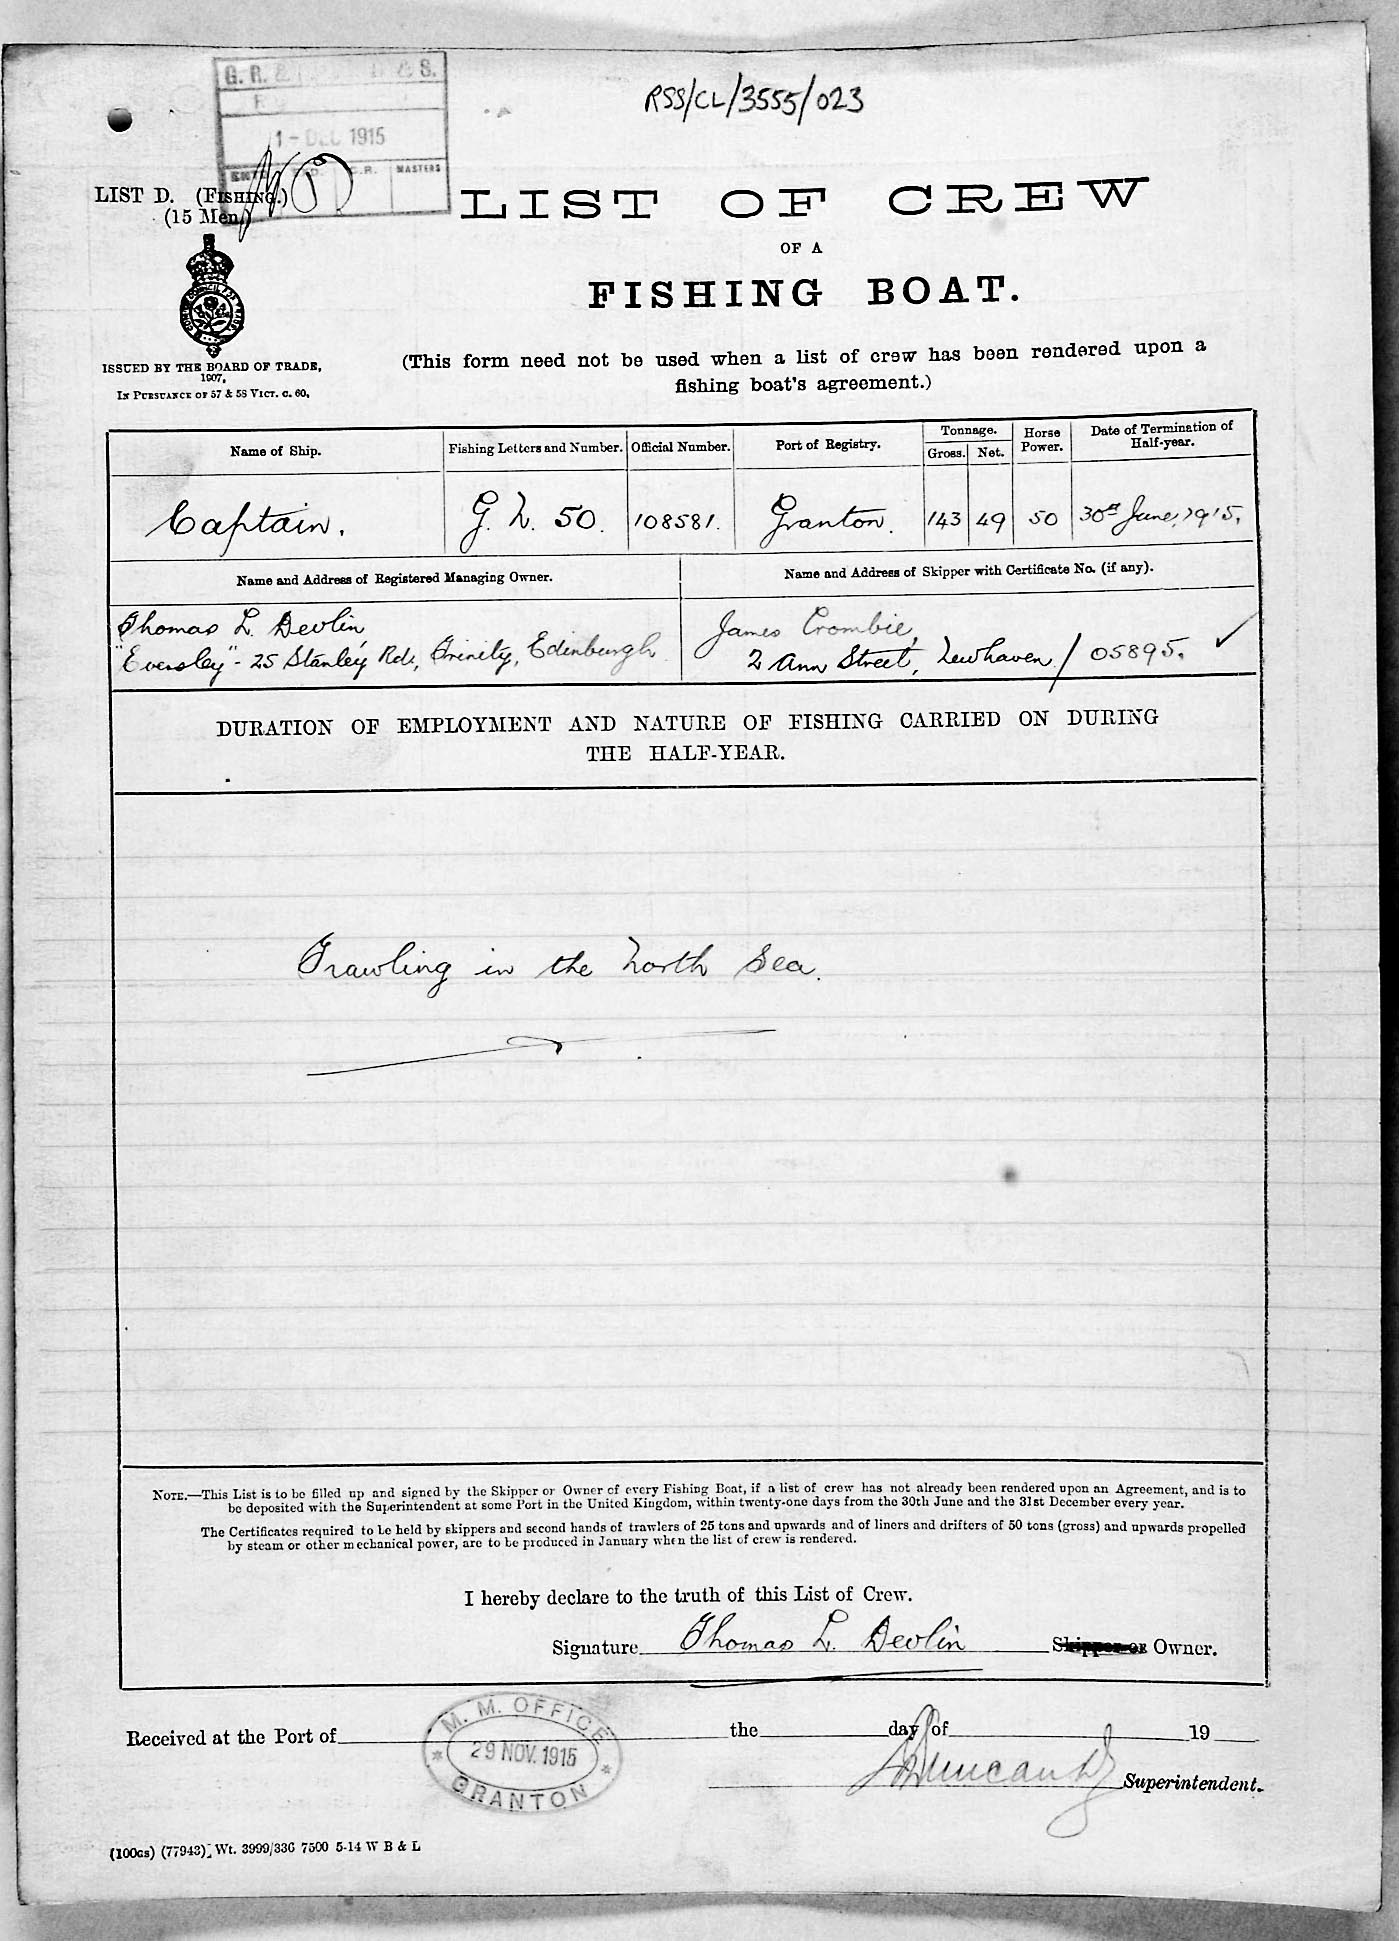 RSS/CL/3555/023
1 - DEC 1915
MASTERS
LIST D. (FISHING.)
(15 Men.)
LIST OF CREW
OF A
FISHING BOAT.
ISSUED BY THE BOARD OF TRADE,
1907,
IN PURSUANCE OF 57 & 58 VICT. C. 60,
(This form need not be used when a list of crew has been rendered upon a
fishing boat's agreement.)
Name of Ship. Fishing Letters and Number. Official Number. Port of Registry. Tonnage. Gross. Net. Horse Power. Date of Termination of Half-year.
Captain. G. N. 50. 108581. Granton. 143 49 50 30th June, 1915.
Name and Address of Registered Managing Owner. Name and Address of Skipper with Certificate No. (if any).
Thomas L. Devlin, James Crombie,
"Eversley" - 25 Stanley Rd., Trinity, Edinburgh 2 Ann Street, Newhaven / 05895.
DURATION OF EMPLOYMENT AND NATURE OF FISHING CARRIED ON DURING
THE HALF-YEAR.
Trawling in the North Sea.
NOTE.—This List is to be filled up and signed by the Skipper or Owner of every Fishing Boat, if a list of crew has not already been rendered upon an Agreement, and is to
be deposited with the Superintendent at some Port in the United Kingdom, within twenty-one days from the 30th June and the 31st December every year.
The Certificates required to be held by skippers and second hands of trawlers of 25 tons and upwards and of liners and drifters of 50 tons (gross) and upwards propelled
by steam or other mechanical power, are to be produced in January when the list of crew is rendered.
I hereby declare to the truth of this List of Crew.
Signature Thomas L. Devlin Skipper or Owner.
M. M. OFFICE
29 NOV. 1915
GRANTON
Received at the Port of the day of 19
Superintendent.
(100GS) (77943) Wt. 3999/336 7500 5-14 W B & L